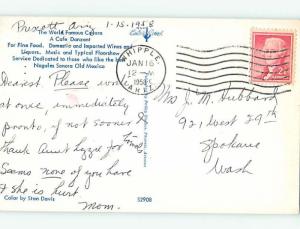 Prescott Ariz 1-15-1958
The World Famous Cavern
A Cafe Danzant
For Fine Food. Domestic and Imported Wines and
Liquors. Music and Typical Floorshow.
Service Dedicated to those who like the best
Nogales Sonora Old Mexico
WHIPPLE
JAN 16
12
1958
Dearest Please write
at once, immediately
pronto, if not sooner &
thank Aunt Lizzie for
Seems none of you have
& she is hurt
Mom.
Mrs J. M. Hubbard
921 West 29th
Spokane
Wash
Color by Stan Davis
S2908